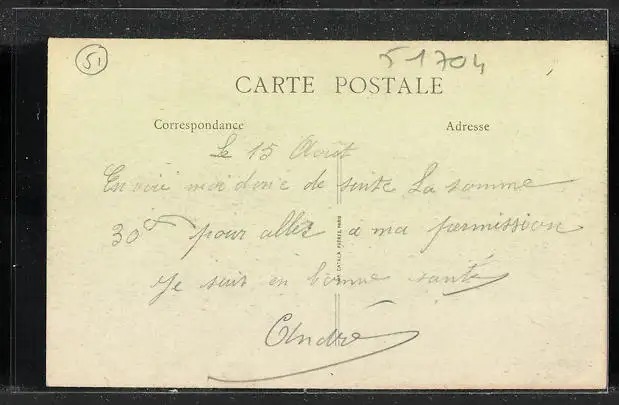 51
51704
CARTE POSTALE
Correspondance
Adresse
Le 15 Août
Envoie moi donc de suite La somme
30 pour aller a ma permission
Je suis en bonne santé
André
CATALA FRERES, PARIS